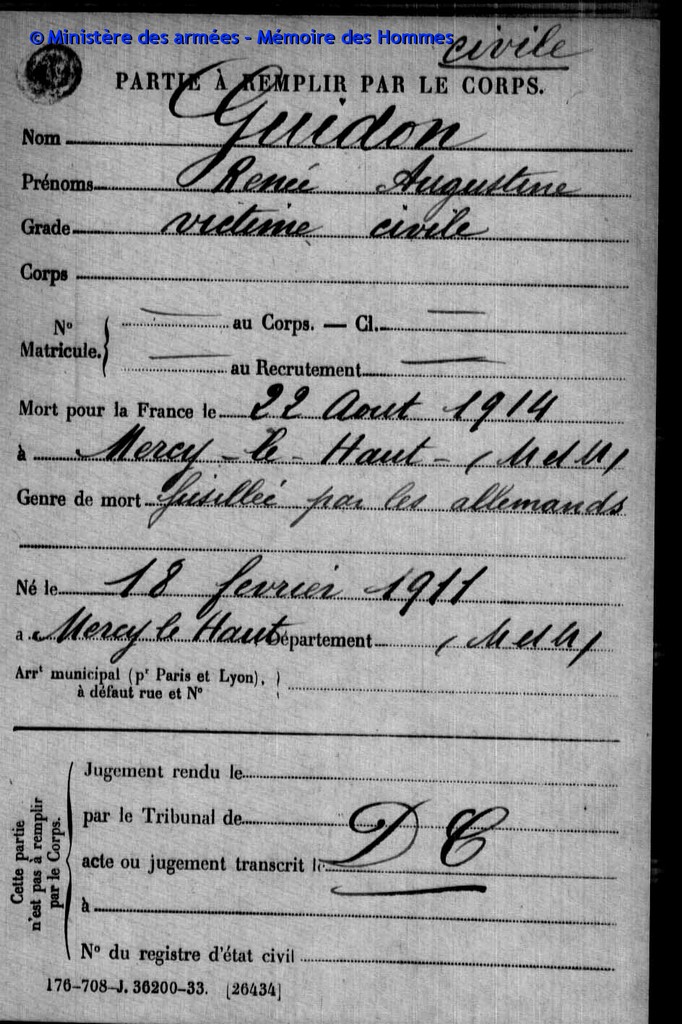 © Ministère des armées - Mémoire des Hommes
civile
PARTIE À REMPLIR PAR LE CORPS.
Nom Guidon
Prénoms Renée Augustine
Grade victime civile
Corps
N° Matricule. — au Corps. — Cl. —
— au Recrutement —
Mort pour la France le 22 Aout 1914
à Mercy-le-Haut- (M et M)
Genre de mort fusillée par les allemands
Né le 18 fevrier 1911
à Mercy le Haut Département (M et M)
Arrt municipal (pr Paris et Lyon),
à défaut rue et N°
Cette partie n'est pas à remplir par le Corps.
Jugement rendu le
par le Tribunal de
D C
acte ou jugement transcrit le
à
N° du registre d'état civil
176-708-J. 36200-33. [26434]